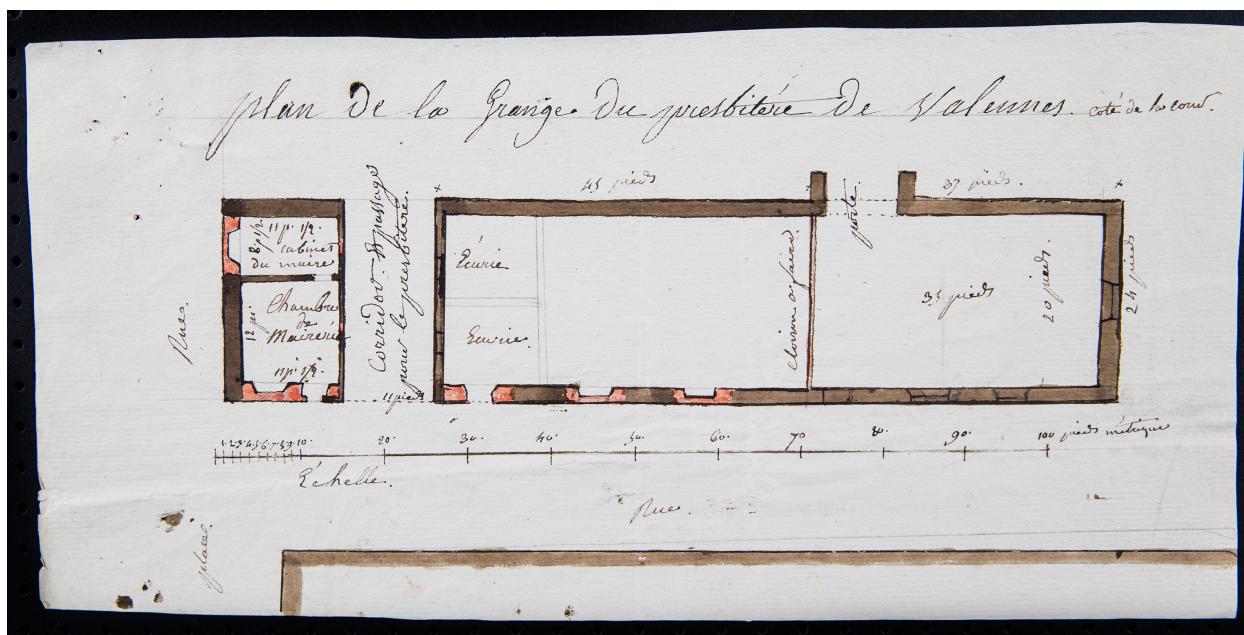 plan de la Grange du presbitére de Valennes. coté de la cour.
45 pieds
37 pieds.
11 p. 1/2.
8 p 1/2.
cabinet
du maire
Chambre
de
Mairerie
12 pi.
11 pi 1/2
Corridor. & passage
pour le presbitére.
11 pieds
Écurie
Ecurie.
cloison a faire.
porte
35 pieds
20 pieds
24 pieds
Rue.
1. 2. 3. 4. 5. 6. 7. 8. 9. 10. 20. 30. 40. 50. 60. 70 80. 90. 100 pieds métrique
Échelle.
Rue.
place.